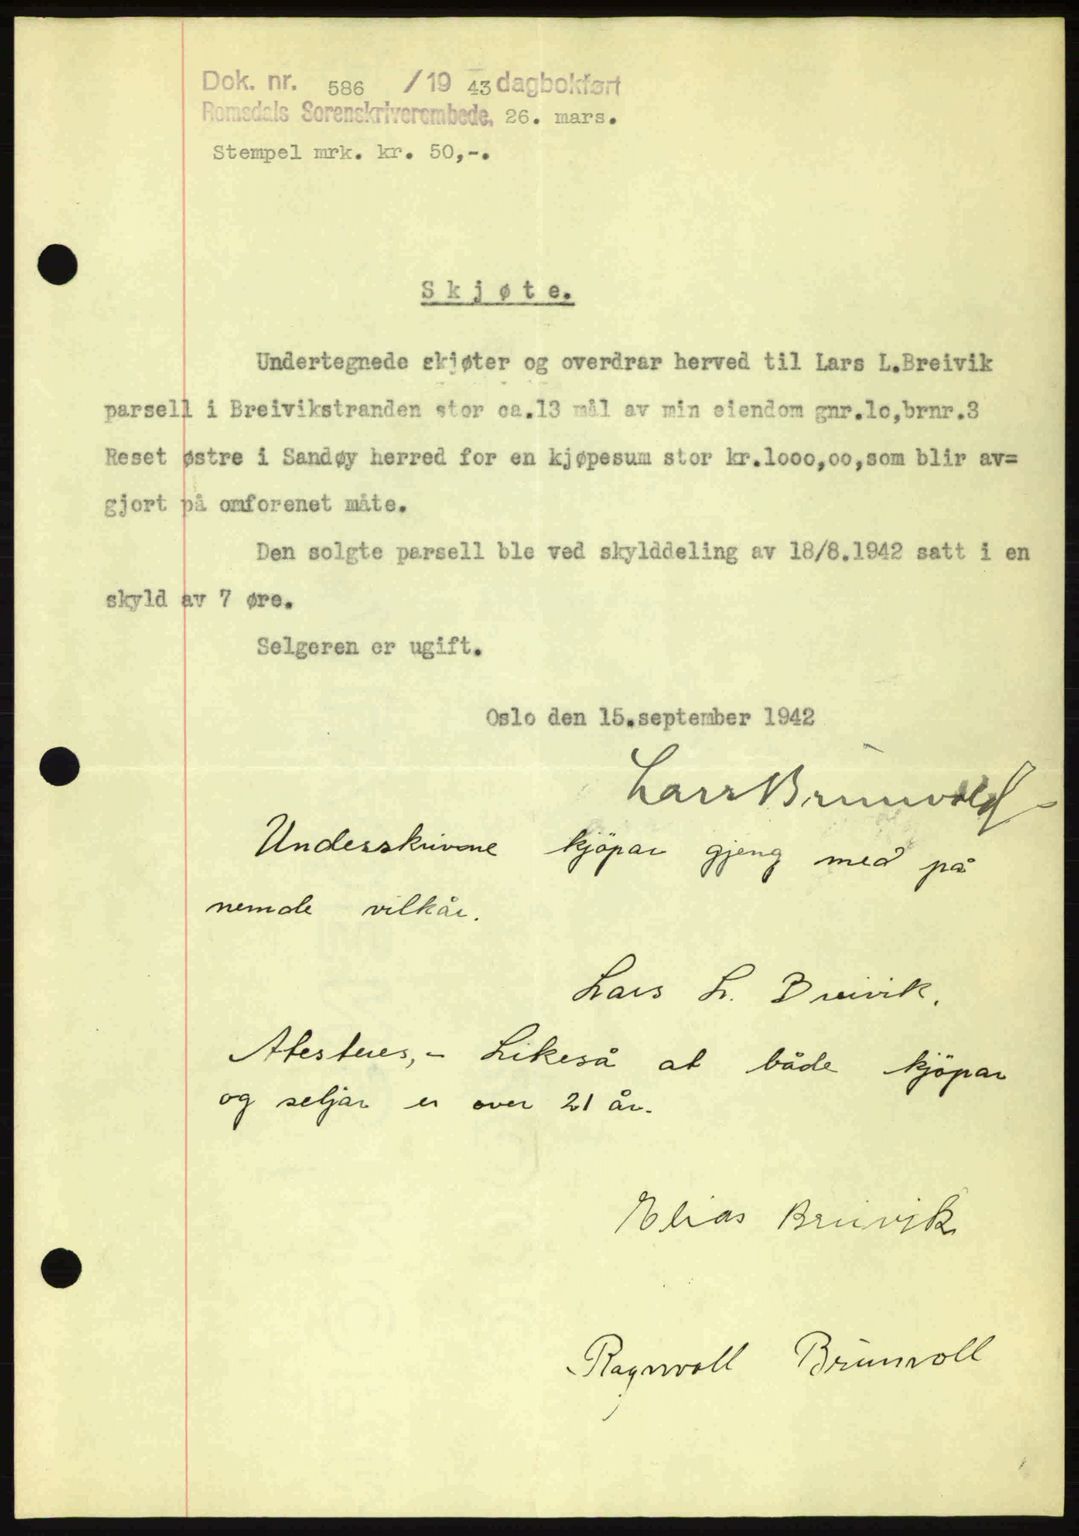 Dok. nr. 586 /19 43 dagbokført
Romsdals Sorenskriverembede, 26. mars.
Stempel mrk. kr. 50,-.
Skjøte.
Undertegnede skjøter og overdrar herved til Lars L.Breivik
parsell i Breivikstranden stor ca.13 mål av min eiendom gnr.1o,brnr.3
Reset østre i Sandøy herred for en kjøpesum stor kr.1ooo,oo,som blir av=
gjort på omforenet måte.
Den solgte parsell ble ved skylddeling av 18/8.1942 satt i en
skyld av 7 øre.
Selgeren er ugift.
Oslo den 15.september 1942
Lars Brunvold
Underskrivne kjöpar gjeng med på
nemde vilkår.
Lars L. Breivik.
Atesteres,- Likeså at både kjöpar
og seljar er over 21 år.
Elias Breivik
Ragnvall Brunvoll